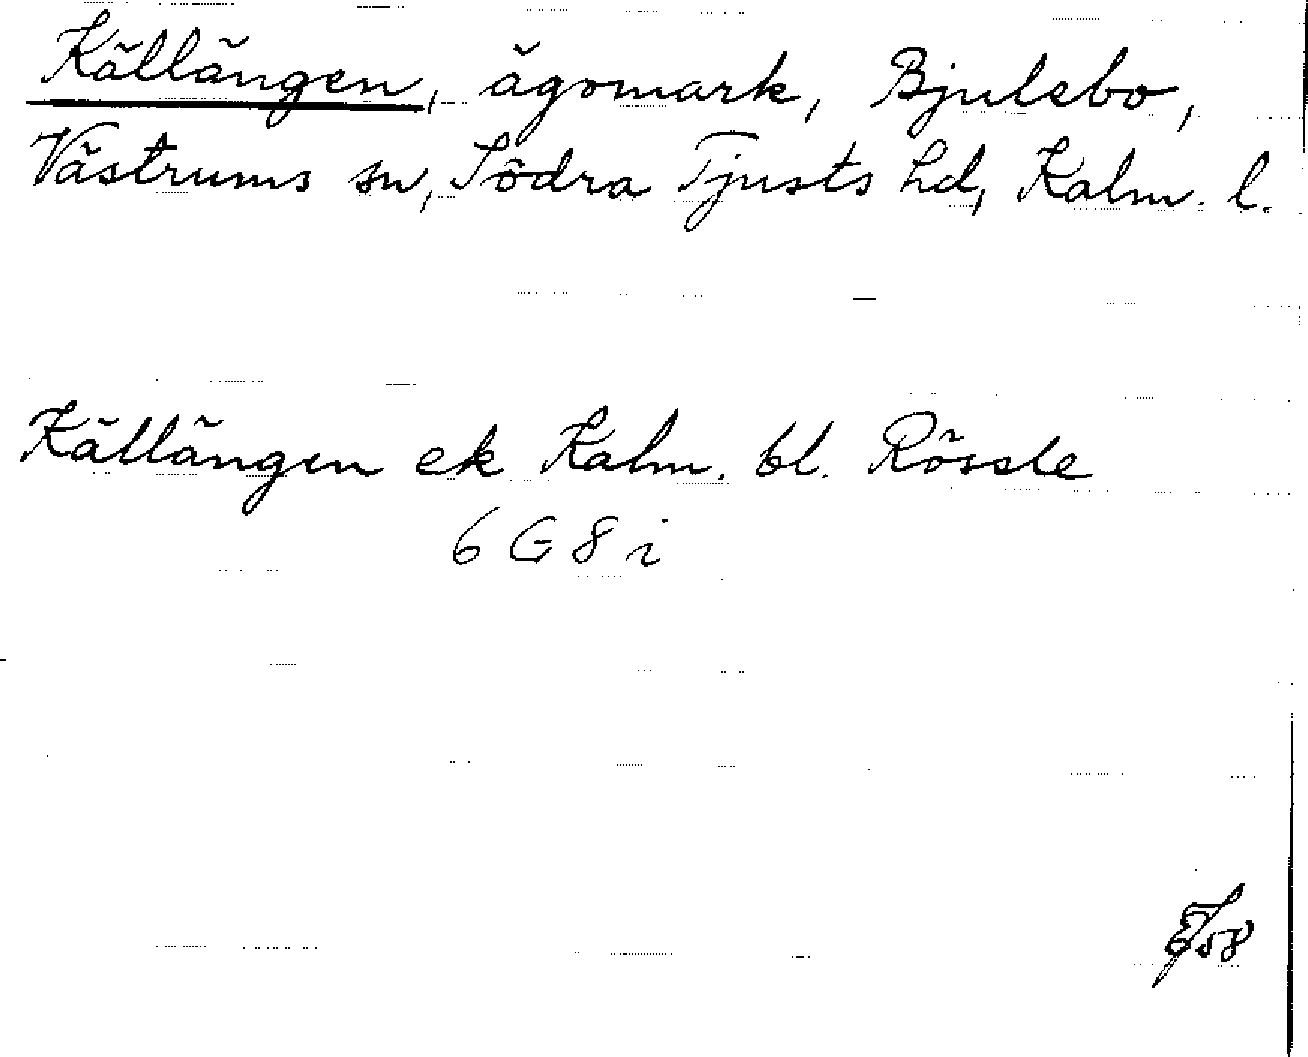 Källängen, ägomark, Bjulebo,
Västrums sn, Södra Tjusts hd, Kalm. l.
Källängen ek Kalm. bl. Rössle
6 G 8 i